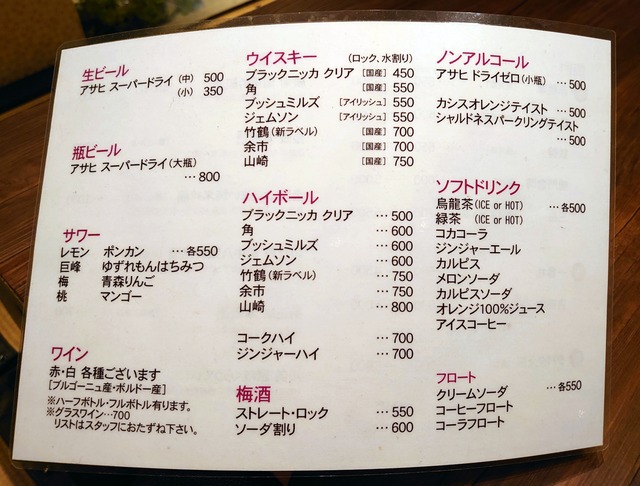 生ビール
アサヒ スーパードライ (中) 500
(小) 350
瓶ビール
アサヒ スーパードライ(大瓶)
…800
サワー
レモン ポンカン …各550
巨峰 ゆずれもんはちみつ
梅 青森りんご
桃 マンゴー
ワイン
赤・白 各種ございます
[ブルゴーニュ産・ボルドー産]
※ハーフボトル・フルボトル有ります。
※グラスワイン…700
リストはスタッフにおたずね下さい。
ウイスキー (ロック、水割り)
ブラックニッカ クリア [国産] 450
角 [国産] 550
ブッシュミルズ [アイリッシュ] 550
ジェムソン [アイリッシュ] 550
竹鶴(新ラベル) [国産] 700
余市 [国産] 700
山崎 [国産] 750
ハイボール
ブラックニッカ クリア …500
角 …600
ブッシュミルズ …600
ジェムソン …600
竹鶴(新ラベル) …750
余市 …750
山崎 …800
コークハイ …700
ジンジャーハイ …700
梅酒
ストレート・ロック …550
ソーダ割り …600
ノンアルコール
アサヒ ドライゼロ(小瓶) …500
カシスオレンジテイスト …500
シャルドネスパークリングテイスト
…500
ソフトドリンク
烏龍茶(ICE or HOT) …各500
緑茶 (ICE or HOT)
コカコーラ
ジンジャーエール
カルピス
メロンソーダ
カルピスソーダ
オレンジ100%ジュース
アイスコーヒー
フロート
クリームソーダ …各550
コーヒーフロート
コーラフロート